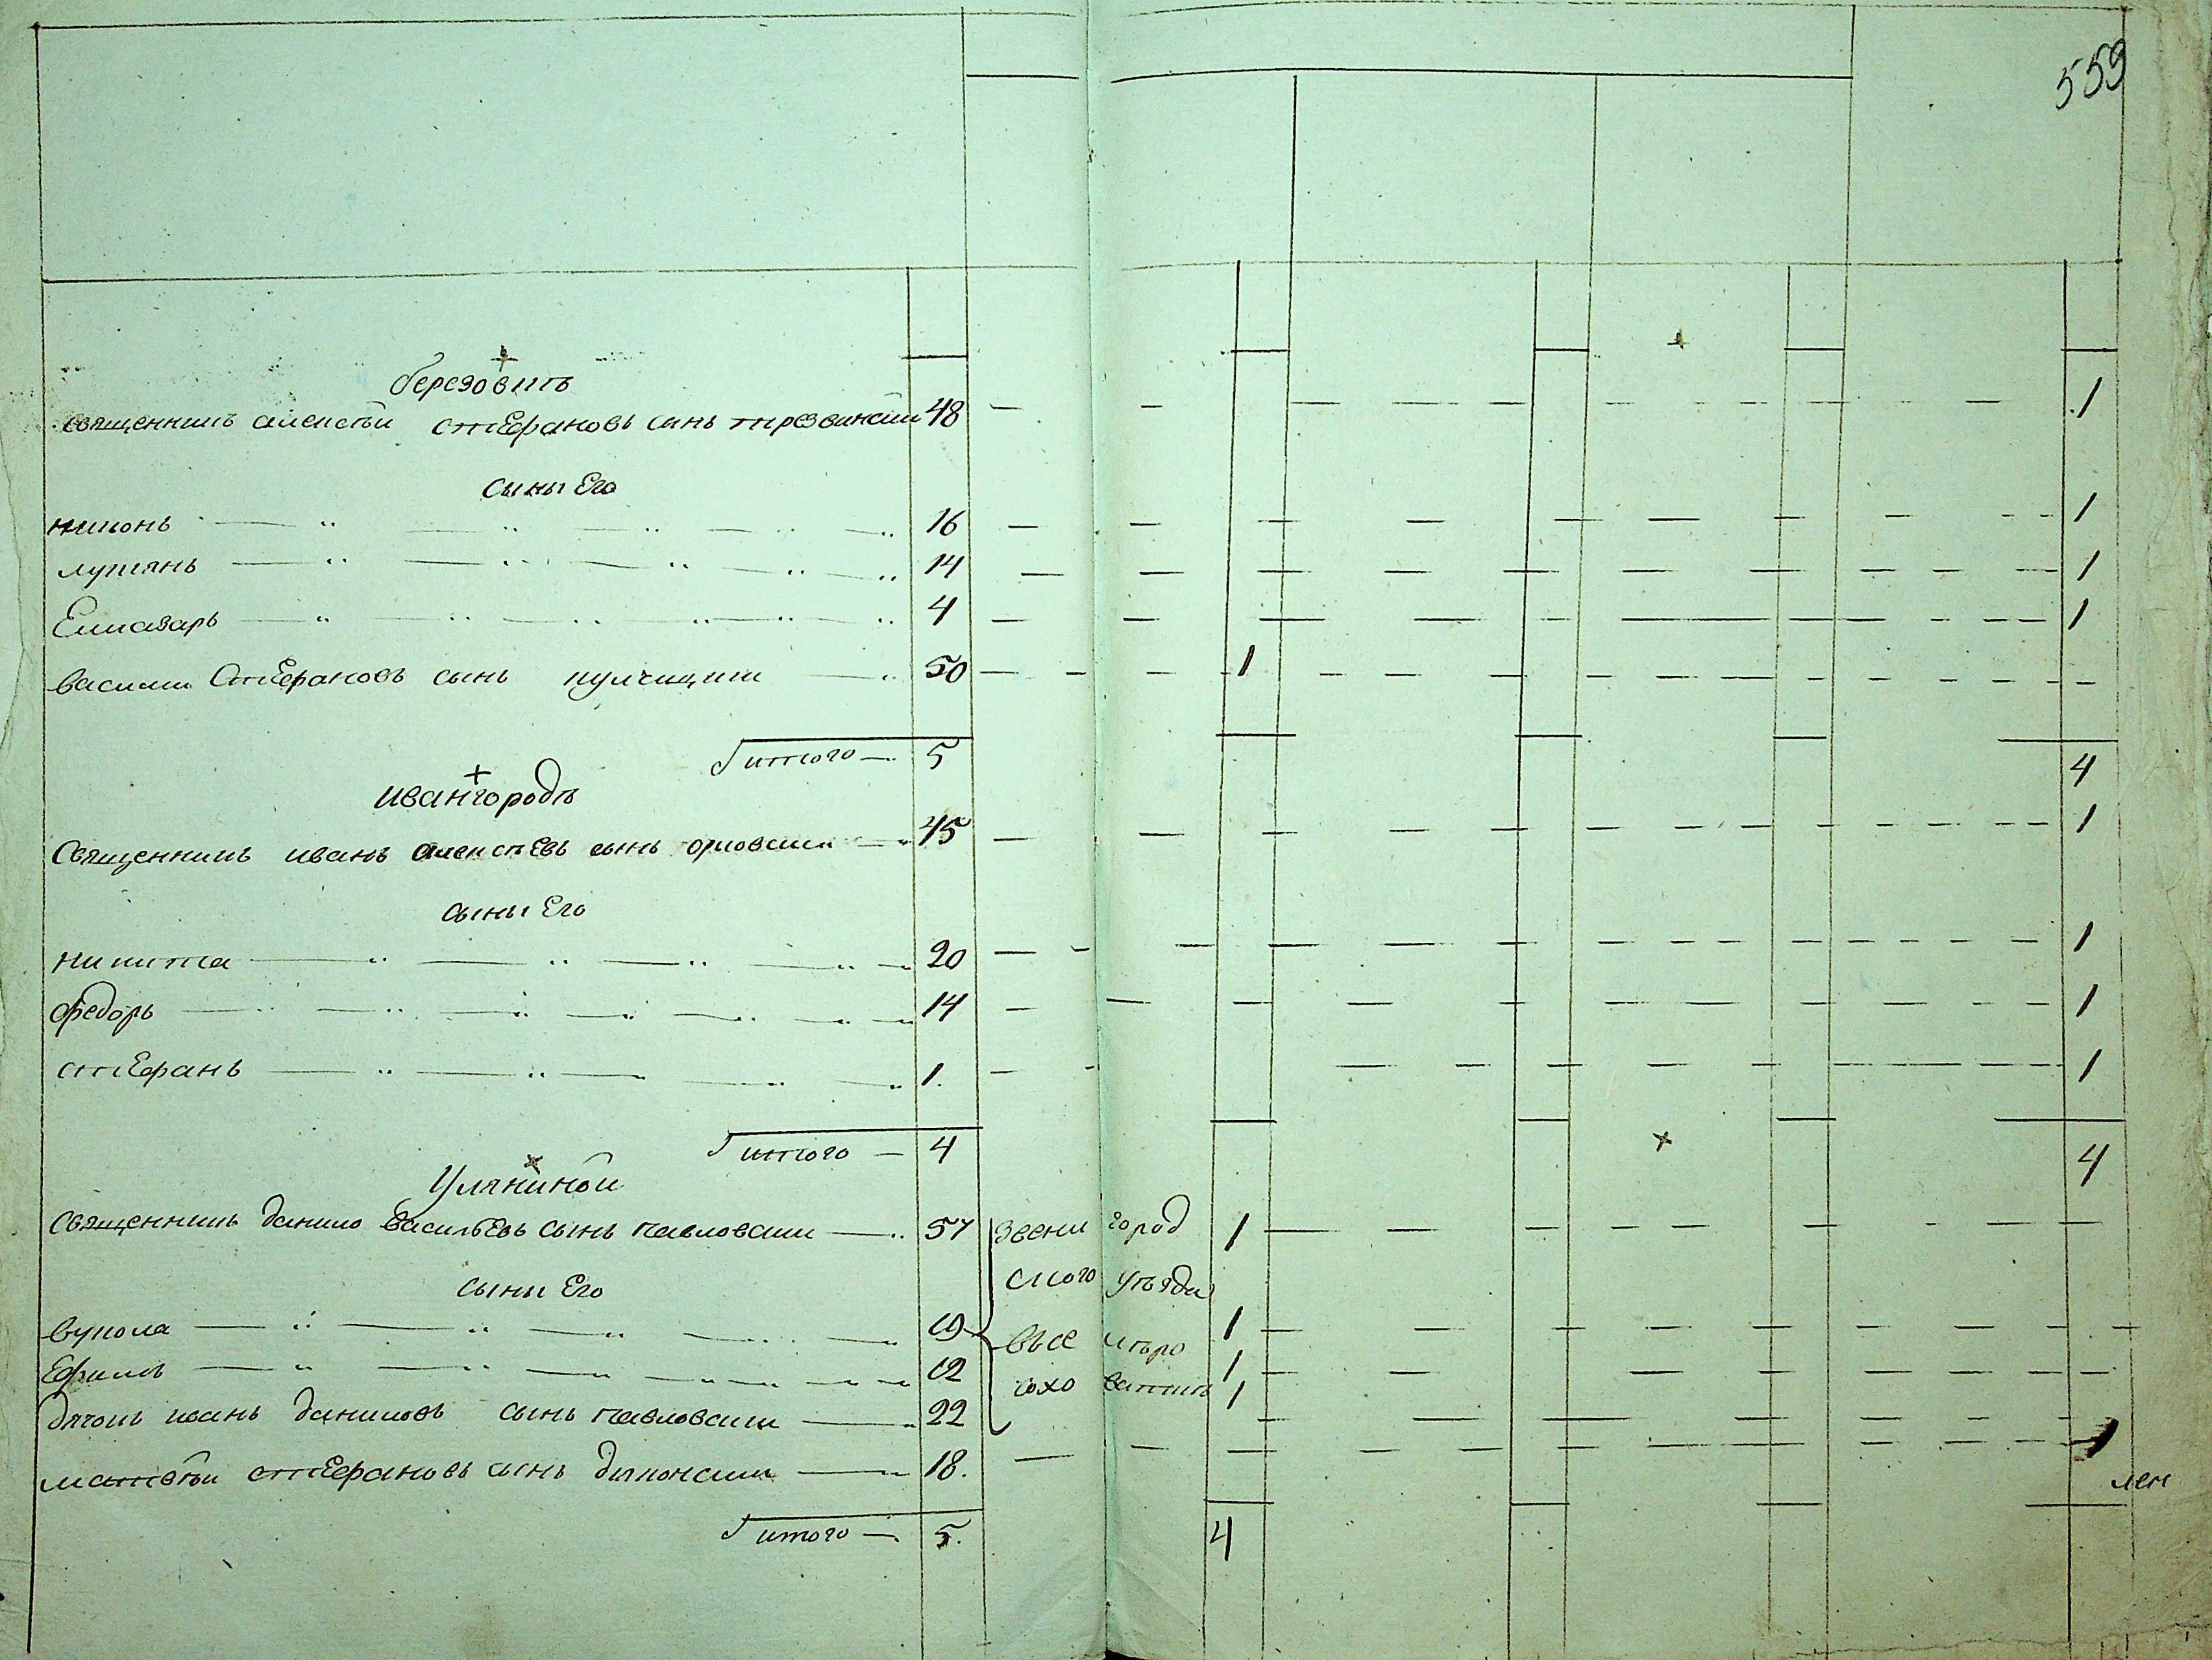 559
березовикъ
священникъ алексѣй стефановъ сынъ трезвинскій 48 1
сыны Его
никонъ 16 1
лукіянъ 14 1
Елиазаръ 4 1
василий Стефановъ сынъ 50 1
итого 5 4
ивангородъ
Священникъ иванъ алексѣевъ сынъ орловскій 45 1
сыны Его
никита 20 1
федоръ 14 1
стефанъ 1. 1
итого 4 4
Уляниной
Священникъ данило васильевъ сынъ павловскій 57 звени город 1
сыны Его ского уѣзда
вукола 19 1
Ефимъ 12 1
дячокъ иванъ даниловъ сынъ павловскій 22 1
матвѣй стефановъ сынъ дияконскій 18. 1
итого 5. 4